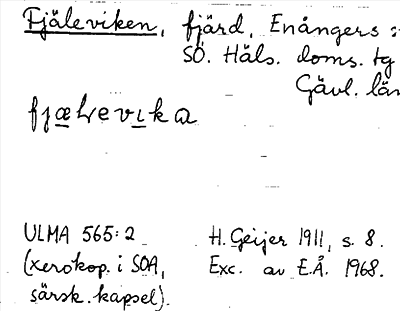 Fjäleviken, fjärd, Enångers s
SÖ. Häls. doms. tg
Gävl. län
fjælrevɩka
ULMA 565:2 H. Geijer 1911, s. 8.
(xerokop. i SOA, Exc. av E.Å. 1968.
särsk. kapsel).